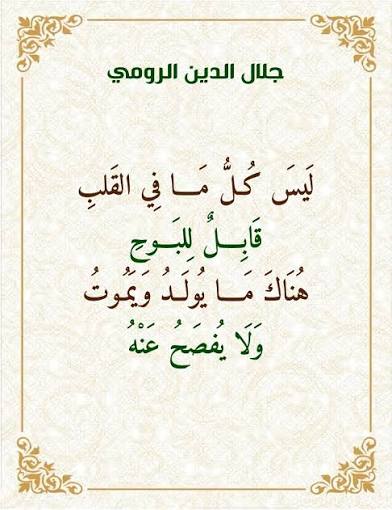 جلال الدين الرومي
لَيسَ كُـلُّ مَـــا فِي القَلبِ
قَابِـــلٌ لِلبَـــوحِ
هُنَاكَ مَـــا يُولَــدُ وَيَمُوتُ
وَلَا يُفصَحُ عَنْهُ